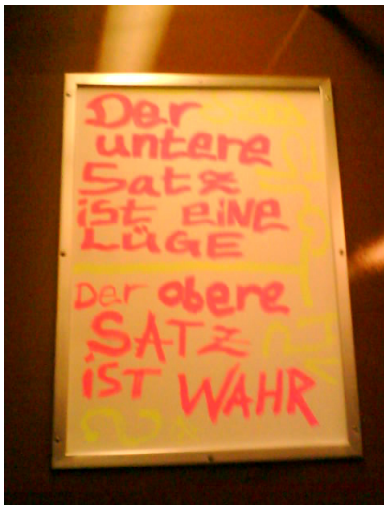 Der
untere
Satz
ist EiNE
LÜGE
Der obere
SATZ
iST WAHR
?